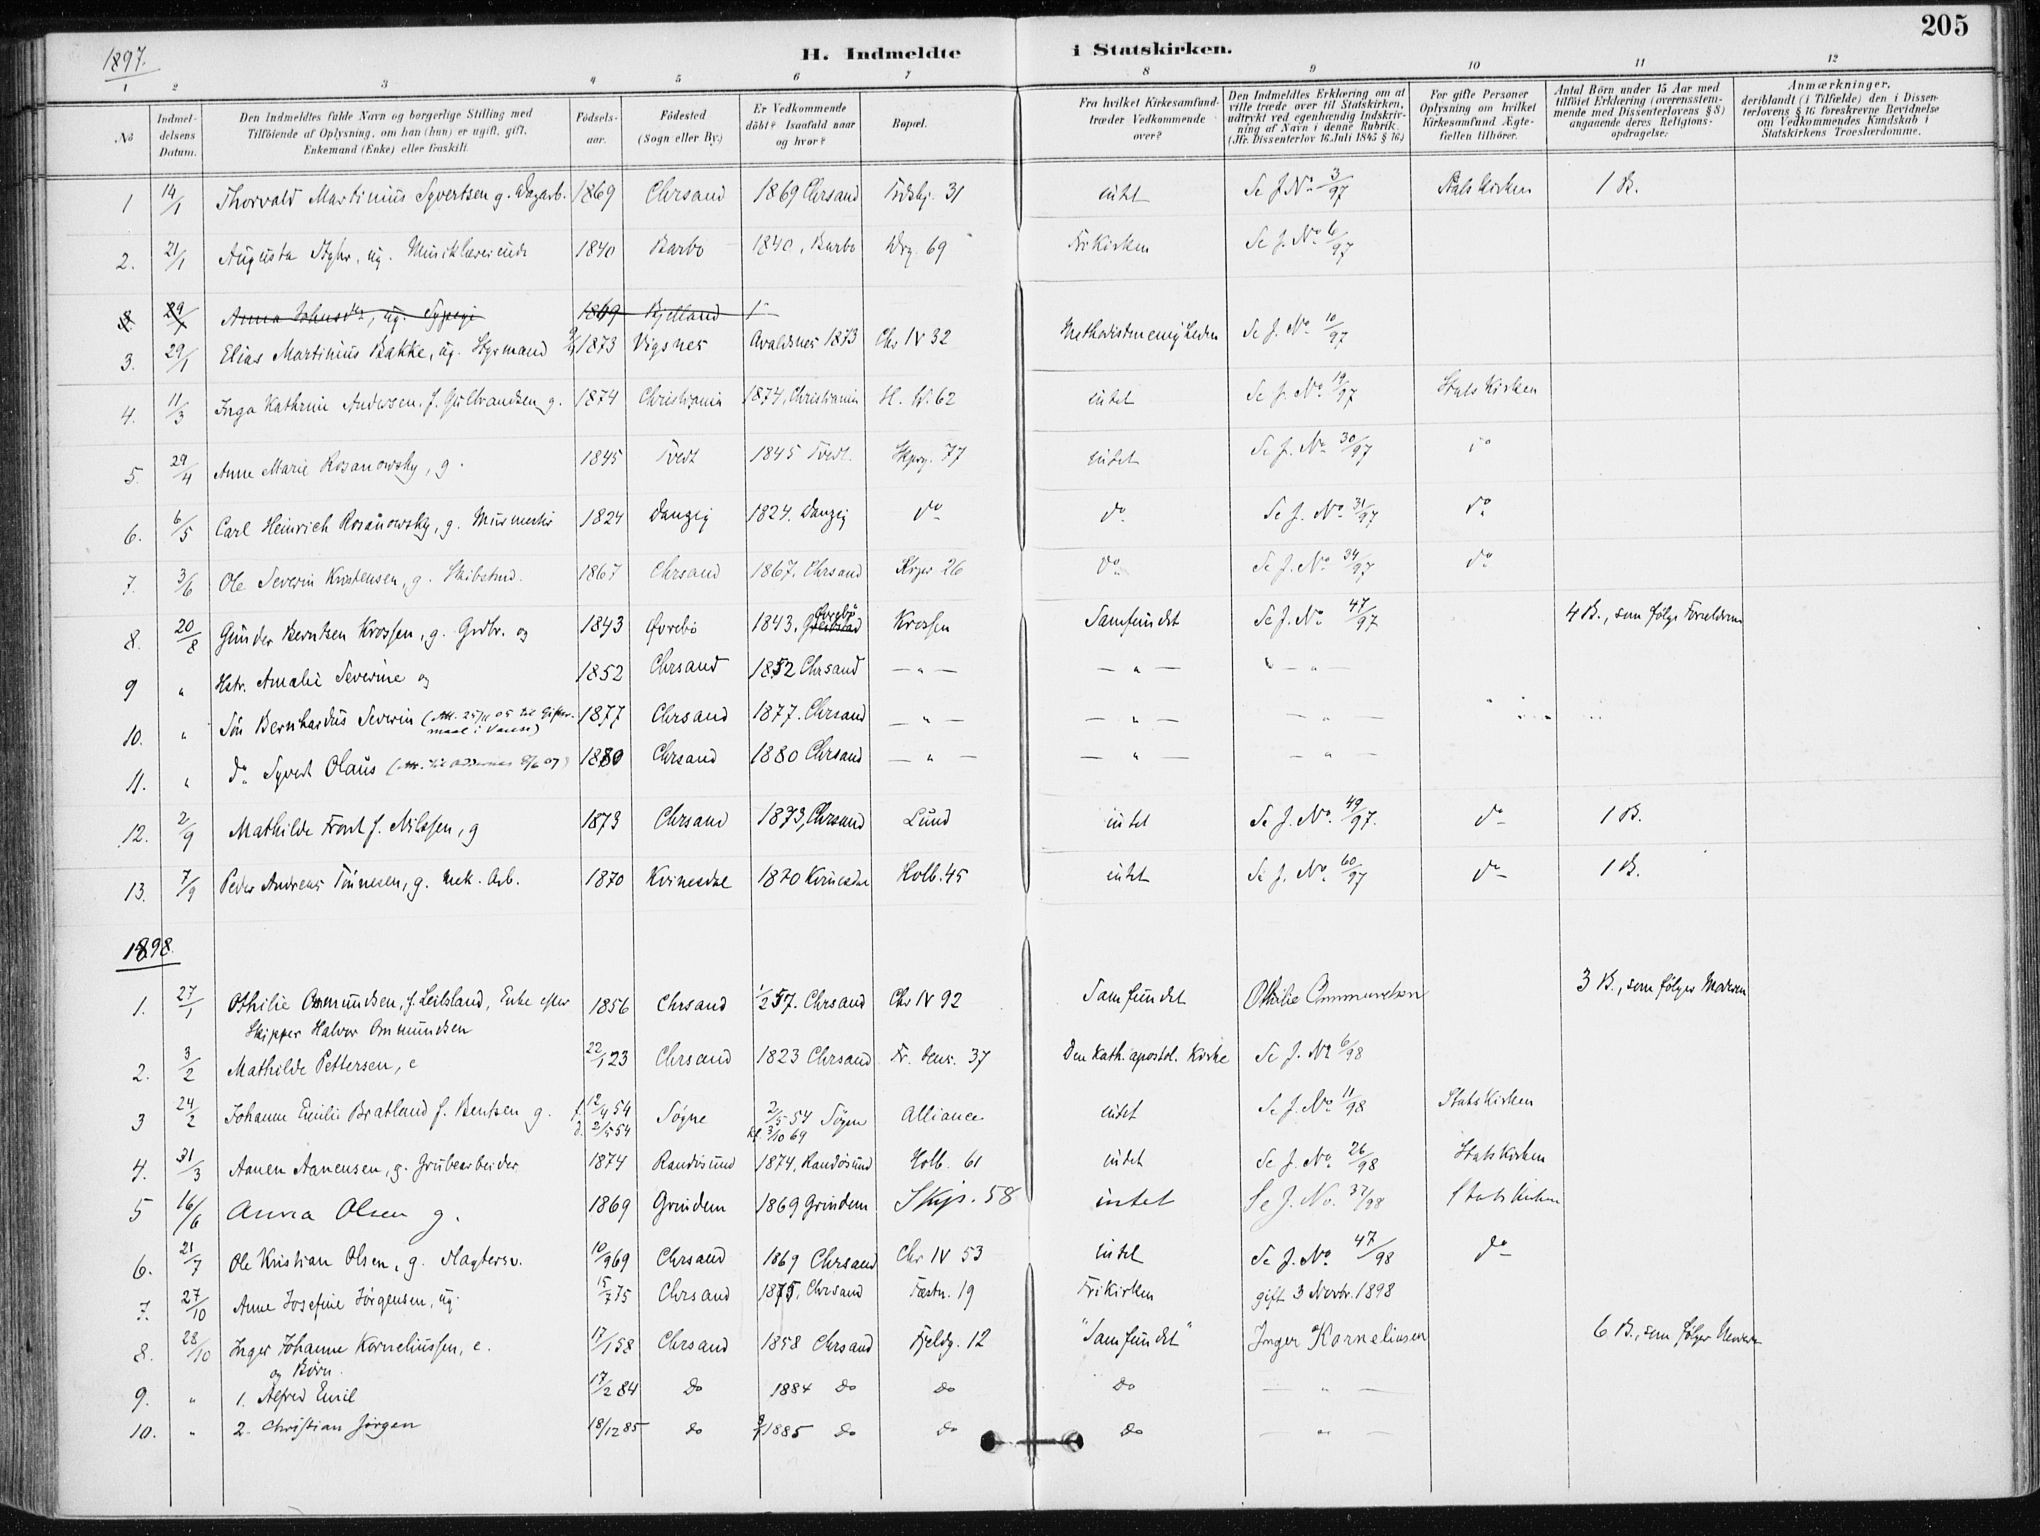 205
1897.
H. Indmeldte i Statskirken.
1 2 3 4 5 6 7 8 9 10 11 12
No
Indmel-
delsens
Datum.
Den Indmeldtes fulde Navn og borgerlige Stilling med
Tilföiende af Oplysning, om han (hun) er ugift, gift,
Enkemand (Enke) eller fraskilt.
Födsels-
aar.
Födested
(Sogn eller By.)
Er Vedkommende
döbt? Isaafald naar
og hvor?
Bopæl.
Fra hvilket Kirkesamfund
træder Vedkommende
over?
Den Indmeldtes Erklæring om at
ville træde over til Statskirken,
udtrykt ved egenhændig Indskriv-
ning af Navn i denne Rubrik.
(Jfr. Dissenterlov 16 Juli 1845 § 16.)
For gifte Personer
Oplysning om hvilket
Kirkesamfund Ægte-
fællen tilhörer.
Antal Börn under 15 Aar med
tilföiet Erklæring (overensstem-
mende med Dissenterlovens § 8)
angaaende deres Religions-
opdragelse:
Anmærkninger,
deriblandt (i Tilfælde) den i Dissen-
terlovens § 16 foreskrevne Bevidnelse
om Vedkommendes Kundskab i
Statskirkens Troeslærdomme.
1 14/1 Thorvald Martinius Syvertsen g. Dagarb. 1869 Chrsand 1869 Chrsand 31 intet Se J. No 3/97 Statskirken 1 B.
2. 21/1 Augusta ug. Musiklærerinde 1840 Barbo 1840, Barbo 69 Frikirken Se J. No 6/97
29/1 Anna ug. 1869 Bjelland
3. 29/1 Elias Martinius Bakke, ug. Styrmand 1873 Vigsnes Avaldsnes 1873 Chr IV 32 Methodistmenigheden Se J. No 10/97
4. 11/3 Inga Kathrine Andersen, f. Gulbrandsen g. 1874 Christiania 1874, Christiania H. W. 62 intet Se J. No 19/97 Statskirken
5. 29/4 Anne Marie Rosanowsky, g. 1845 Tvedt 1845 Tvedt. 77 intet Se J. No 30/97 do
6. 6/5 Carl Heinrich Rosanowsky, g. Murmester 1824 Danzig 1824. Danzig do do. Se J. No 31/97 do
7. 3/6 Ole Severin Kristensen, g. 1867 Chrsand 1867. Chrsand 26 do Se J. No 34/97 do
8. 20/8 Gunder Berntsen Krossen, g. Grdbr. og 1843 Øvrebö 1843, Øvrebö Krossen Samfundet Se J. No 47/97 4 B., som følge Forældrene
9 " Hstr. Amalie Severine og 1852 Chrsand 1852 Chrsand — " — — " — — " —
10. " Sön Bernhardus Severin (Att. 25/11 05 til Gifter-
maal i Vanse) 1877 Chrsand 1877. Chrsand — " — — " — — " —
11. " do Syvert Olaus (Att. til Oddernes 07) 1880 Chrsand 1880 Chrsand — " — — " — — " —
12. 2/9 Mathilde Tront f. Nilssen, g 1873 Chrsand 1873, Chrsand Lund intet Se J. No. 49/97. do 1 B.
13. 7/9 Peder Andreas Tönnesen, g. mek. Arb. 1870 Kvinesdal 1870 Kvinesdal Holb. 45 intet Se J. No. 60/97 do 1 B.
1898.
1. 27/1 Othilie Ommundsen, f. Leitsland, Enke efter
Skipper Halvor Ommundsen 1856 Chrsand 1/2 57. Chrsand Chr IV 92 Samfundet Othilie Ommundsen 3 B., som følger Moderen
2. 3/2 Mathilde Pettersen, e 22/1 23 Chrsand 1823 Chrsand 37 Den Kath. apostol. Kirke Se J. No 6/98
3 24/2 Johanne Emilie Bratland f. Bentsen g. f. 12/4 54
d. 2/5 54 Sögne 2/5 54 Sögne
kf. 3/10 69 Alliance intet Se J. No 11/98 Statskirken
4. 31/3 Aanen Aanensen, g. Grubearbeider 1874 Randösund 1874, Randösund Holb. 61 intet Se J. No 26/98 Statskirken
5 16/6 Anna Olsen g. 1869 Grindem 1869 Grindem Skip. 58 intet Se J. No. 37/98 Statskirken
6. 21/7 Ole Kristian Olsen, g. Slagtersv. 10/9 69 Chrsand 1869 Chrsand Chr IV 53 intet Se J. No 47/98 do
7. 27/10 Anne Josefine Jörgensen, ug. 15/7 75 Chrsand 1875, Chrsand Fæstn. 19 Frikirken gift 3 Novbr. 1898
8. 28/10 Inger Johanne Korneliussen, e.
og Börn. 17/1 58 Chrsand 1858 Chrsand Fjeldg. 12 "Samfundet" Inger Korneliusen 6 B., som følger Moderen
9. " 1. Alfred Emil 17/2 84 do 1884 do do do — " —
10. " 2. Christian Jörgen 18/12 85 do 1885 do do do — " —